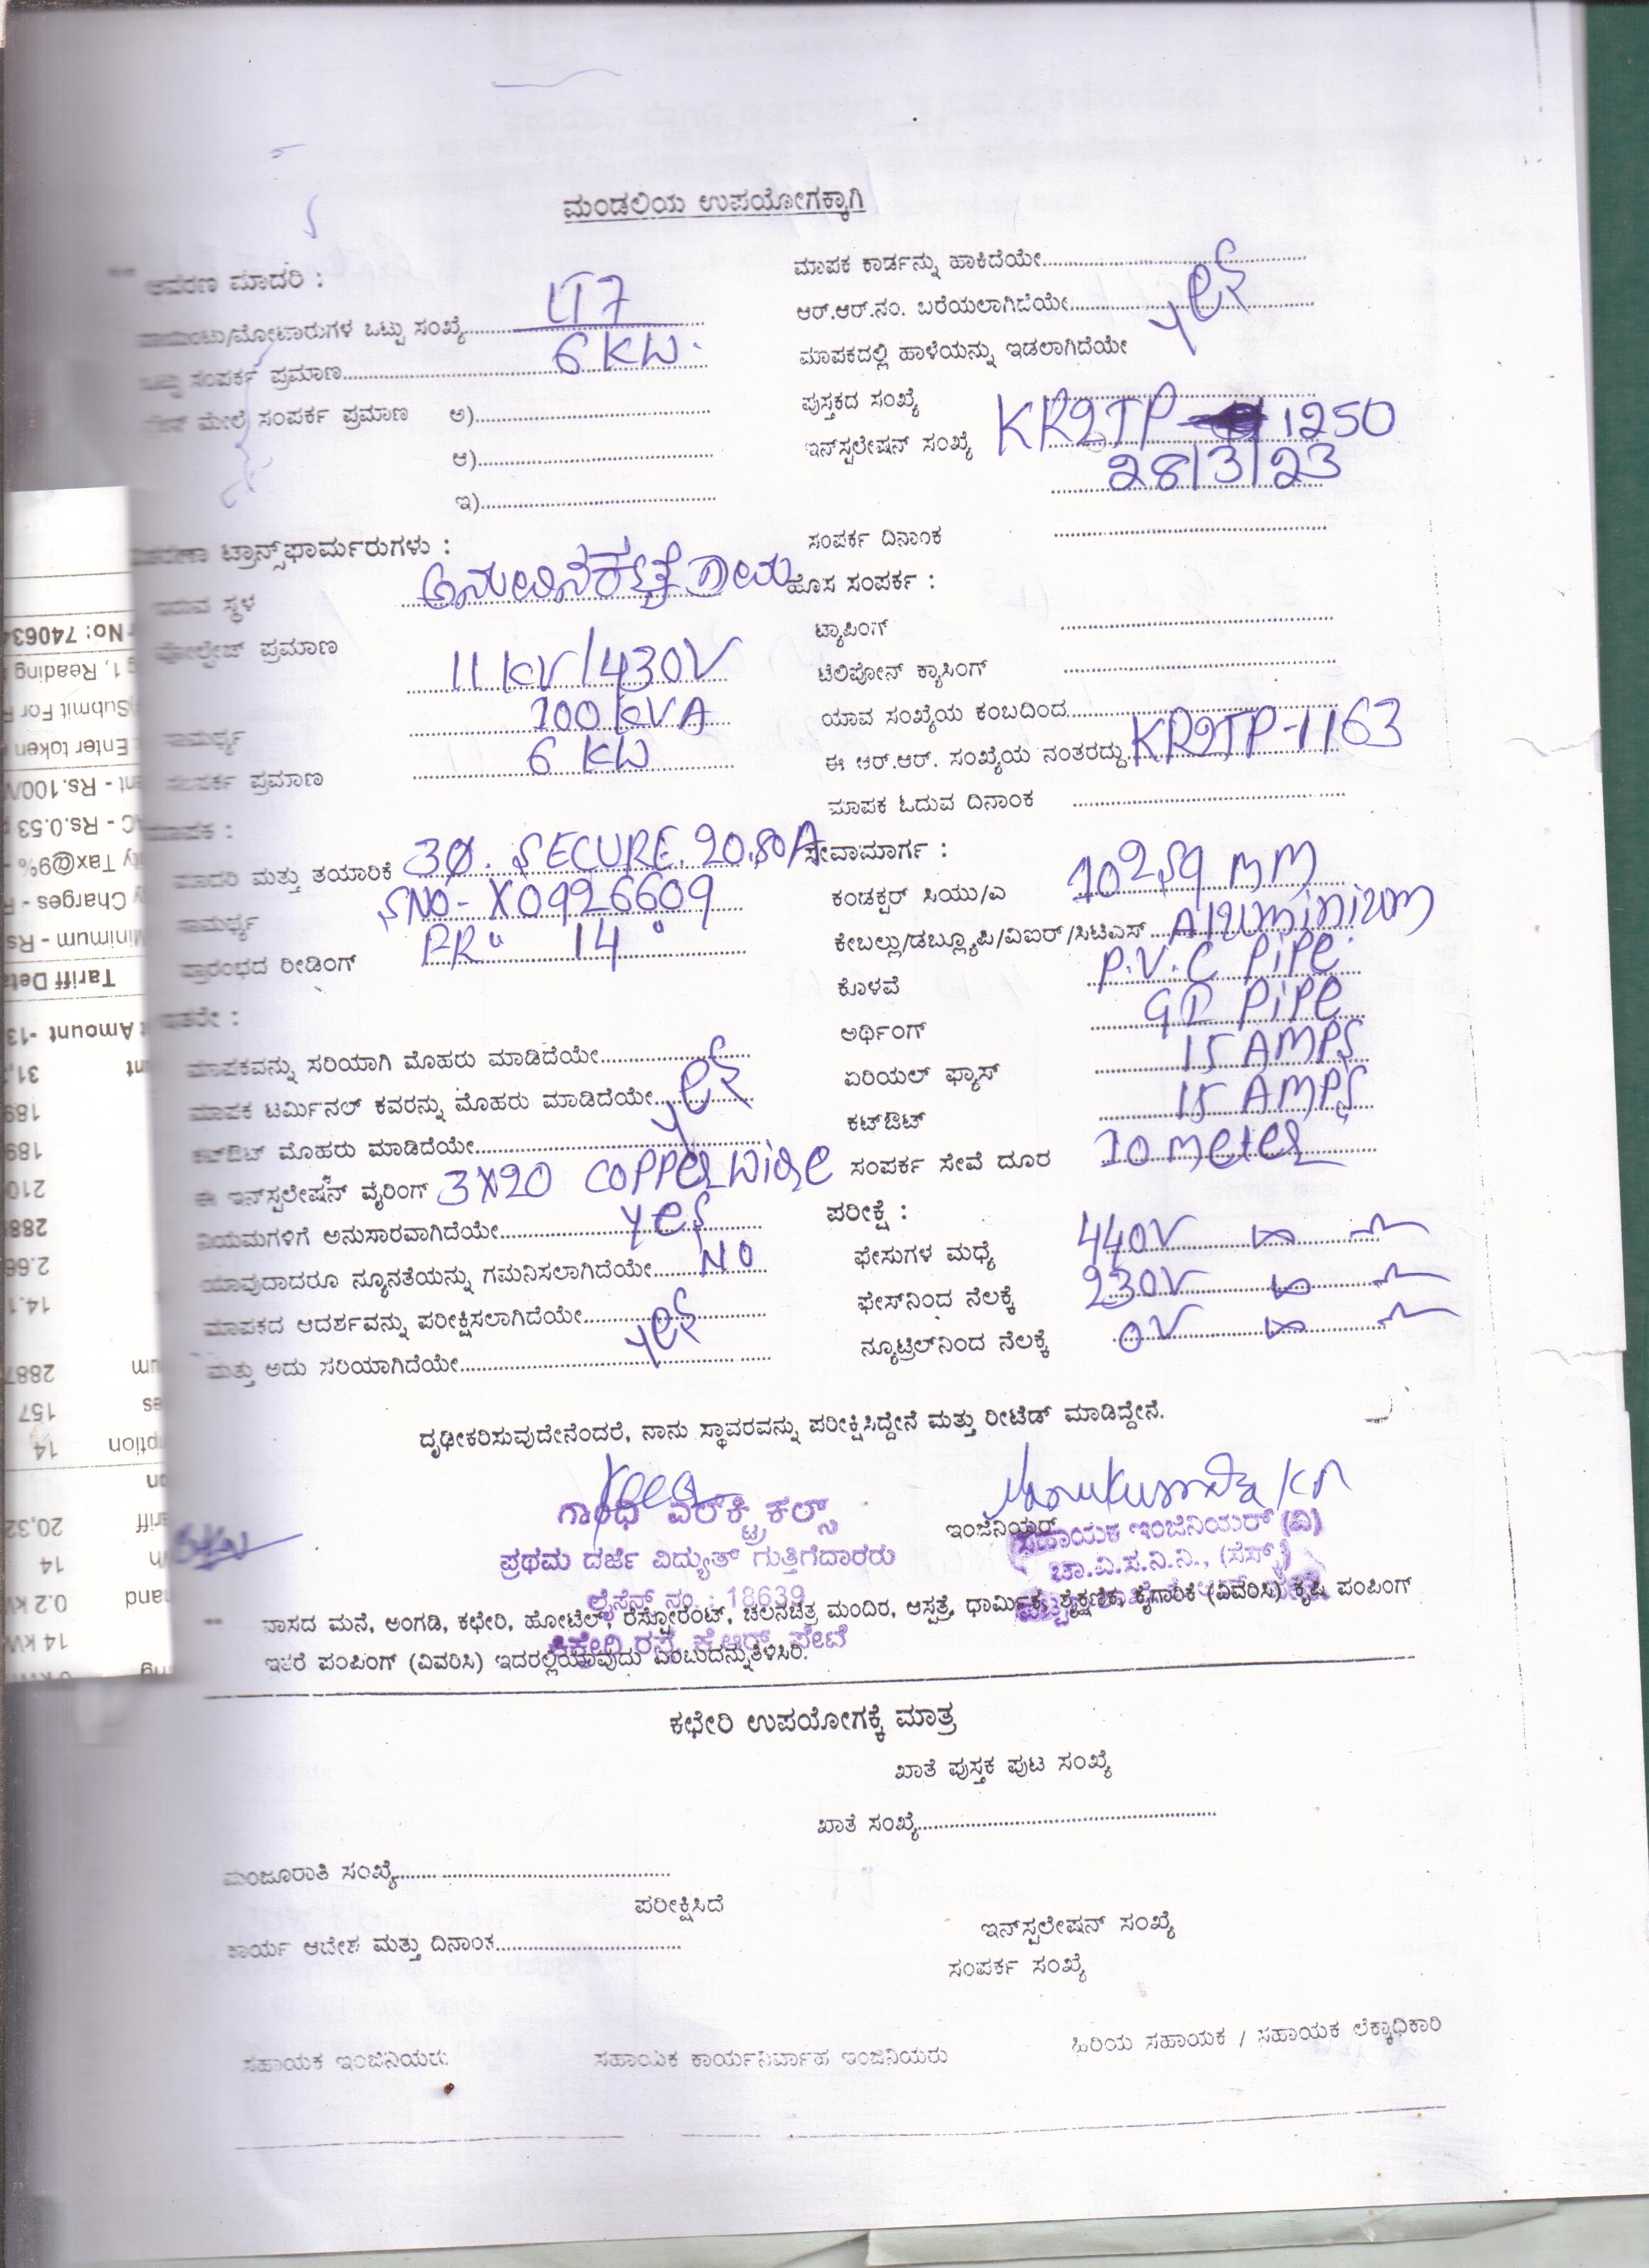 ಮಂಡಲಿಯ ಉಪಯೋಗಕ್ಕಾಗಿ
** ಆವರಣ ಮಾದರಿ :
ಪಾಯಿಂಟು/ಮೋಟಾರುಗಳ ಒಟ್ಟು ಸಂಖ್ಯೆ LT7
ಒಟ್ಟು ಸಂಪರ್ಕ ಪ್ರಮಾಣ 6 KW.
ಮೇಲೆ ಸಂಪರ್ಕ ಪ್ರಮಾಣ ಅ)
ಆ)
ಇ)
ಟ್ರಾನ್ಸ್‌ಫಾರ್ಮರುಗಳು :
ಇರುವ ಸ್ಥಳ
ವೋಲ್ಟೇಜ್ ಪ್ರಮಾಣ 11 KV/430V
ಸಾಮರ್ಥ್ಯ 100 KVA
ಸಂಪರ್ಕ ಪ್ರಮಾಣ 6 KW
ಮಾಪಕ :
ಮಾದರಿ ಮತ್ತು ತಯಾರಿಕೆ 3Ø. SECURE. 20.80A
ಸಾಮರ್ಥ್ಯ SNO- X0926609
ಪ್ರಾರಂಭದ ರೀಡಿಂಗ್ FR: 14
ಇತರೇ :
ಮಾಪಕವನ್ನು ಸರಿಯಾಗಿ ಮೊಹರು ಮಾಡಿದೆಯೇ
ಮಾಪಕ ಟರ್ಮಿನಲ್ ಕವರನ್ನು ಮೊಹರು ಮಾಡಿದೆಯೇ yes
ಕಟ್‌ಔಟ್ ಮೊಹರು ಮಾಡಿದೆಯೇ
ಈ ಇನ್‌ಸ್ಟಲೇಷನ್ ವೈರಿಂಗ್ 3X20 COPPER Wire
ನಿಯಮಗಳಿಗೆ ಅನುಸಾರವಾಗಿದೆಯೇ yes
ಯಾವುದಾದರೂ ನ್ಯೂನತೆಯನ್ನು ಗಮನಿಸಲಾಗಿದೆಯೇ NO
ಮಾಪಕದ ಆದರ್ಶವನ್ನು ಪರೀಕ್ಷಿಸಲಾಗಿದೆಯೇ yes
ಮತ್ತು ಅದು ಸರಿಯಾಗಿದೆಯೇ
ಮಾಪಕ ಕಾರ್ಡನ್ನು ಹಾಕಿದೆಯೇ
ಆರ್.ಆರ್.ನಂ. ಬರೆಯಲಾಗಿದೆಯೇ yes
ಮಾಪಕದಲ್ಲಿ ಹಾಳೆಯನ್ನು ಇಡಲಾಗಿದೆಯೇ
ಪುಸ್ತಕದ ಸಂಖ್ಯೆ
ಇನ್‌ಸ್ಟಲೇಷನ್ ಸಂಖ್ಯೆ KR2TP 1250
28/3/23
ಸಂಪರ್ಕ ದಿನಾಂಕ
ಹೊಸ ಸಂಪರ್ಕ :
ಟ್ಯಾಪಿಂಗ್
ಟೆಲಿಫೋನ್ ಕ್ಯಾಸಿಂಗ್
ಯಾವ ಸಂಖ್ಯೆಯ ಕಂಬದಿಂದ
ಈ ಆರ್.ಆರ್. ಸಂಖ್ಯೆಯ ನಂತರದ್ದು KR2TP-1163
ಮಾಪಕ ಓದುವ ದಿನಾಂಕ
ಸೇವಾಮಾರ್ಗ :
ಕಂಡಕ್ಟರ್ ಸಿಯು/ಎ 102 Sq mm
ಕೇಬಲ್ಲು/ಡಬ್ಲ್ಯೂಪಿ/ವಿಐರ್/ಸಿಟಿಎಸ್ Aluminium
ಕೊಳವೆ P.V.C PiPe.
ಅರ್ಥಿಂಗ್ GI PiPe
ಏರಿಯಲ್ ಫ್ಯೂಸ್ 15 AMPS
ಕಟ್‌ಔಟ್ 15 AMPS
ಸಂಪರ್ಕ ಸೇವೆ ದೂರ 10 meter
ಪರೀಕ್ಷೆ :
ಫೇಸುಗಳ ಮಧ್ಯೆ 440V
ಫೇಸ್‌ನಿಂದ ನೆಲಕ್ಕೆ 230V
ನ್ಯೂಟ್ರಲ್‌ನಿಂದ ನೆಲಕ್ಕೆ 0V
ದೃಢೀಕರಿಸುವುದೇನೆಂದರೆ, ನಾನು ಸ್ಥಾವರವನ್ನು ಪರೀಕ್ಷಿಸಿದ್ದೇನೆ ಮತ್ತು ರೀಟೆಡ್ ಮಾಡಿದ್ದೇನೆ.
ಗಾಂಧಿ ಎಲೆಕ್ಟ್ರಿಕಲ್ಸ್
ಪ್ರಥಮ ದರ್ಜೆ ವಿದ್ಯುತ್ ಗುತ್ತಿಗೆದಾರರು
ಲೈಸೆನ್ಸ್ ನಂ. : 18639
ಕೆ.ಆರ್. ಪೇಟೆ
ಇಂಜಿನಿಯರ್
ಸಹಾಯಕ ಇಂಜಿನಿಯರ್ (ವಿ)
ಚಾ.ವಿ.ಸ.ನಿ.ನಿ., (ಸೆಸ್ಕ್)
** ವಾಸದ ಮನೆ, ಅಂಗಡಿ, ಕಛೇರಿ, ಹೋಟೆಲ್, ರೆಸ್ಟೋರೆಂಟ್, ಚಲನಚಿತ್ರ ಮಂದಿರ, ಆಸ್ಪತ್ರೆ, ಧಾರ್ಮಿಕ, ಶೈಕ್ಷಣಿಕ, ಕೈಗಾರಿಕೆ (ವಿವರಿಸಿ) ಕೃಷಿ ಪಂಪಿಂಗ್
ಇತರೆ ಪಂಪಿಂಗ್ (ವಿವರಿಸಿ) ಇದರಲ್ಲಿಯಾವುದು ಎಂಬುದನ್ನುತಿಳಿಸಿರಿ.
ಕಛೇರಿ ಉಪಯೋಗಕ್ಕೆ ಮಾತ್ರ
ಖಾತೆ ಪುಸ್ತಕ ಪುಟ ಸಂಖ್ಯೆ
ಖಾತೆ ಸಂಖ್ಯೆ
ಮಂಜೂರಾತಿ ಸಂಖ್ಯೆ
ಪರೀಕ್ಷಿಸಿದೆ
ಕಾರ್ಯ ಆದೇಶ ಮತ್ತು ದಿನಾಂಕ
ಇನ್‌ಸ್ಟಲೇಷನ್ ಸಂಖ್ಯೆ
ಸಂಪರ್ಕ ಸಂಖ್ಯೆ
ಸಹಾಯಕ ಇಂಜಿನಿಯರು
ಸಹಾಯಕ ಕಾರ್ಯನಿರ್ವಾಹ ಇಂಜಿನಿಯರು
ಹಿರಿಯ ಸಹಾಯಕ / ಸಹಾಯಕ ಲೆಕ್ಕಾಧಿಕಾರಿ